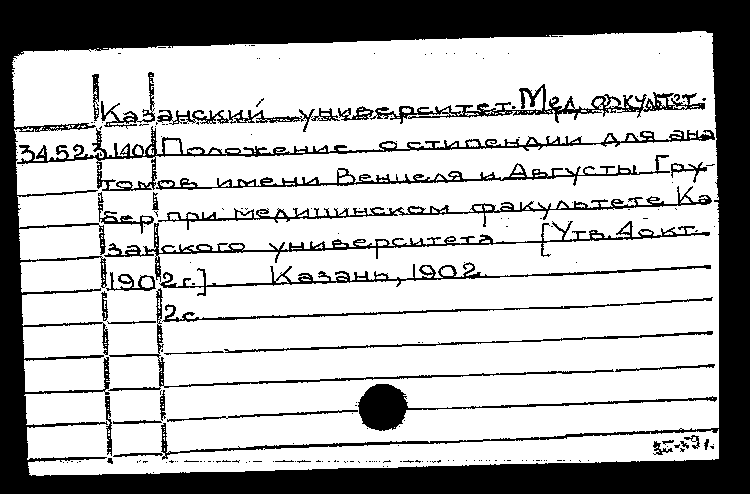 Казанский университет. Мед. факультет.
34.52.3.1400 Положение о стипендии для ана
томов имени Венцеля и Августы Гру-
бер при медицинском факультете Ка
занского университета [Утв. 4 окт.
1902 г.]. Казань, 1902
2 с.